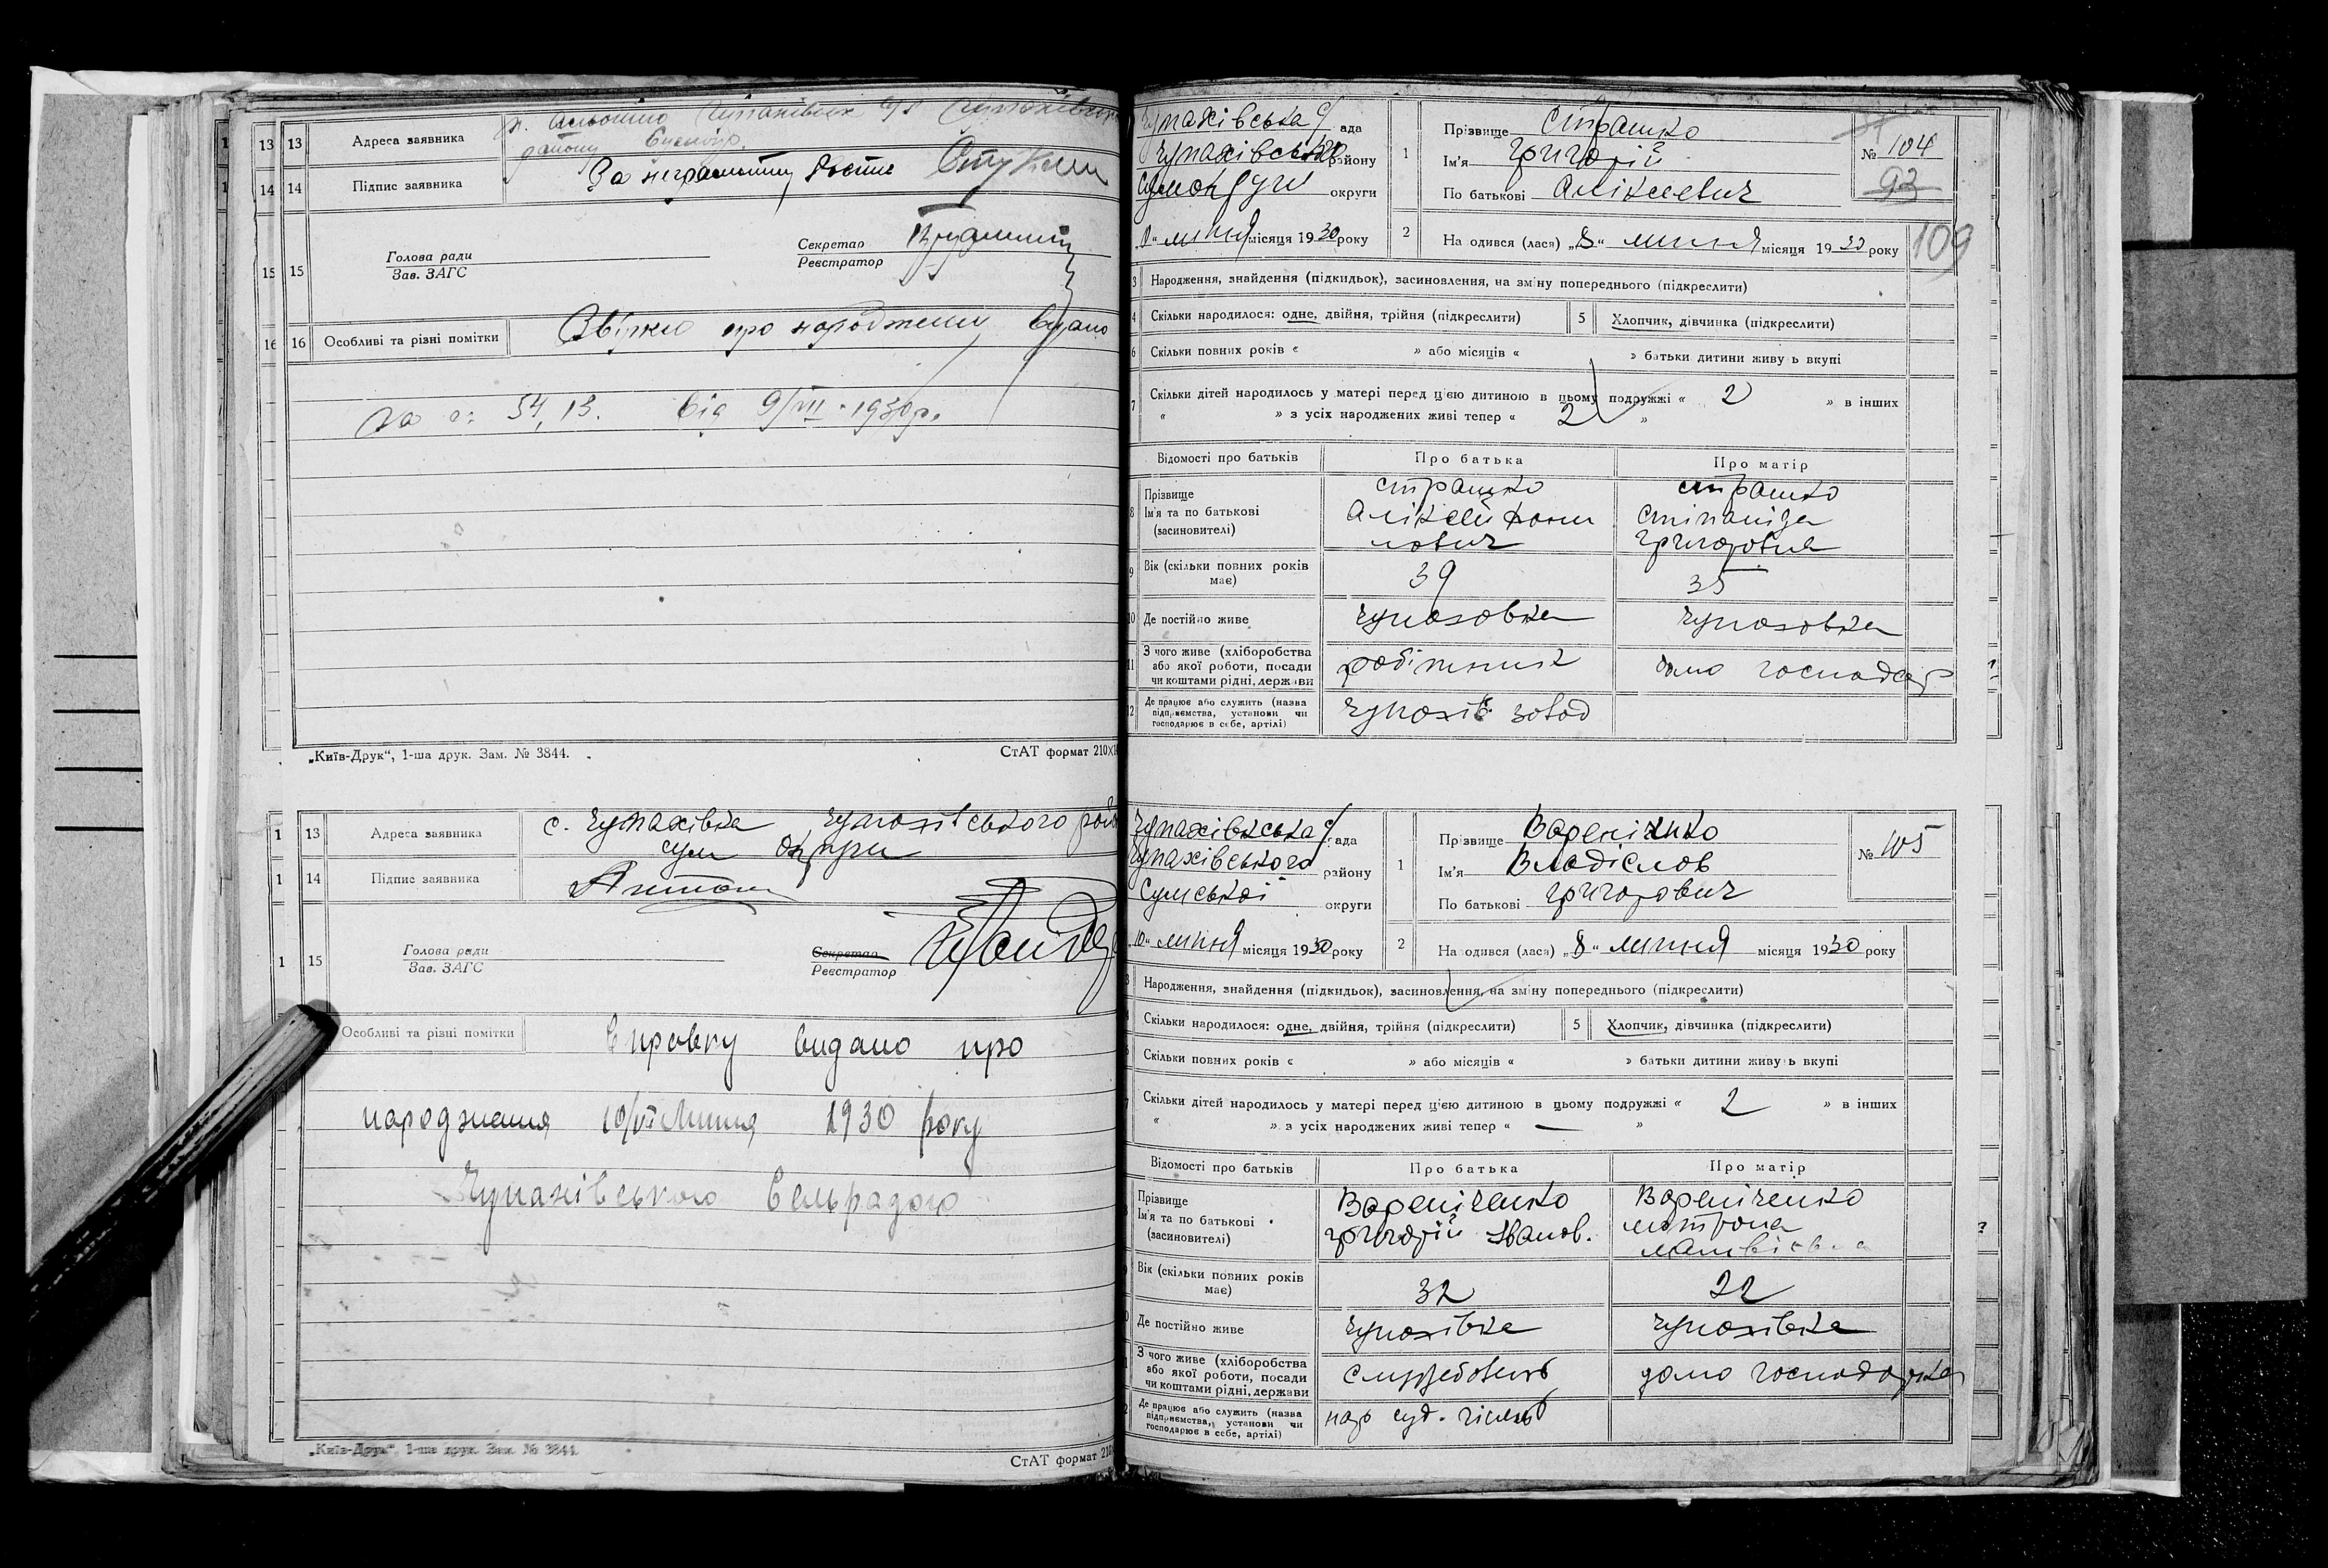 13 13 Адреса заявника
району
14 14 Підпис заявника За неграмотну
15 15 Голова ради
Зав. ЗАГС
Секретар
Реєстратор
16 16 Особливі та різні помітки про народження видано
За №: 54, 13. від 9/VII - 1930 р.
„Київ-Друк“, 1-ша друк. Зам. № 3844.
СтАТ формат 210×
1 13 Адреса заявника с. Чупахівка Чупахівського
сум округи
1 14 Підпис заявника
1 15 Голова ради
Зав. ЗАГС
Секретар
Реєстратор
Особливі та різні помітки видано про
народження 10/VII Липня 1930 року
Чупахівського Сельрадою
„Київ-Друк“, 1-ша друк. Зам. № 3844.
СтАТ формат 210
Чупахівська с/ ада
Чупахівський району
округи
липня місяця 1930 року
1 Прізвище Страшко
Ім'я Григорій
По батькові Аліксієвич
№ 104
93
109
2 На одився (лася) „8“ липня місяця 19 30 року
3 Народження, знайдення (підкидьок), засиновлення, на зміну попереднього (підкреслити)
4 Скільки народилося: одне, двійня, трійня (підкреслити) 5 Хлопчик, дівчинка (підкреслити)
6 Скільки повних років « » або місяців « » батьки дитини живуть вкупі
7 Скільки дітей народилось у матері перед цією дитиною в цьому подружжі « 2 » в інших
« » з усіх народжених живі тепер « 2 »
Відомості про батьків Про батька Про матір
8 Прізвище страшко страшко
Ім'я та по батькові Аліксей
(засиновителі) григоровна
9 Вік (скільки повних років має) 39 35
10 Де постійно живе чупаховка чупаховка
11 З чого живе (хліборобства
або якої роботи, посади
чи коштами рідні, держави робітник домо господар
12 Де працює або служить (назва
підприємства, установи чи
господарює в себе, артілі) чупахів завод
Чупахівська с/ рада
Чупахівського району
Сумської округи
„10“ липня місяця 1930 року
1 Прізвище
Ім'я Владіслов
По батькові григорович
№ 105
2 На одився (лася) „8“ липня місяця 1930 року
3 Народження, знайдення (підкидьок), засиновлення, на зміну попереднього (підкреслити)
Скільки народилося: одне, двійня, трійня (підкреслити) 5 Хлопчик, дівчинка (підкреслити)
Скільки повних років « » або місяців « » батьки дитини живуть вкупі
Скільки дітей народилось у матері перед цією дитиною в цьому подружжі « 2 » в інших
« » з усіх народжених живі тепер « — »
Відомості про батьків Про батька Про матір
Прізвище Вареніченко Вареніченко
Ім'я та по батькові григорій Іванов. мотрона
(засиновителі)
Вік (скільки повних років має) 32 22
Де постійно живе чупахівка чупахівка
З чого живе (хліборобства
або якої роботи, посади
чи коштами рідні, держави домо господарка
Де працює або служить (назва
підприємства, установи чи
господарює в себе, артілі) нар суд.